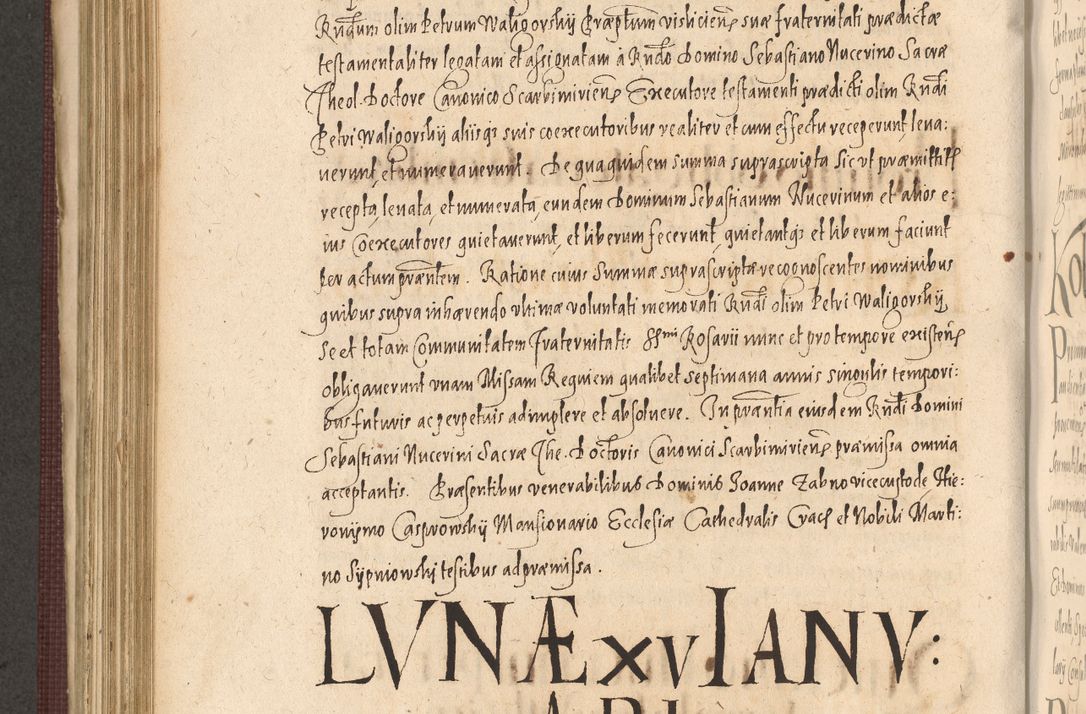 Rndum olim Petrum Waligorskÿ Præptum visliciens suæ fraternitati prædictæ
testamentaliter legatam et assignatam à Rndo Domino Sebastiano Nucerino Sacræ
Theol. Doctore Canonico Scarbimiriens Executore testamenti prædicti olim Rndi
Petri Waligorskÿ aliisqz suis coexecutoribus realiter et cum effectu receperunt, leua:
uerunt, et numerauerunt. De qua quidem summa suprascripta sic ut præmittitr
recepta, leuata, et numerata, eundem Dominum Sebastianum Nucerinum et alios e:
ius Coexecutores quietauerunt, et liberum fecerunt, quietantqz et liberum faciunt
per actum præntem. Ratione cuius Summæ suprascriptæ recognoscentes nominibus
quibus supra inhærendo vltimæ voluntati memorati Rndi olim Petri Waligorskÿ
se et totam Communitatem Fraternitatis SSmi Rosarii nunc et pro tempore existens
obligauerunt vnam Missam Requiem qualibet septimana annis singulis tempori:
bus futuris ac perpetuis adimplere et absoluere. In præntia eiusdem Rndi Domini
Sebastiani Nucerini Sacræ The. Doctoris Canonici Scarbimiriens præmissa omnia
acceptantis. Præsentibus venerabilibus Dominis Joanne Zabno vicecustode, Hie:
ronÿmo Casprowskÿ Mansionario Ecclesiæ Cathedralis Crac et Nobili Marti:
no Sÿpniowskj testibus ad præmissa.
LVNÆ XV IANV: